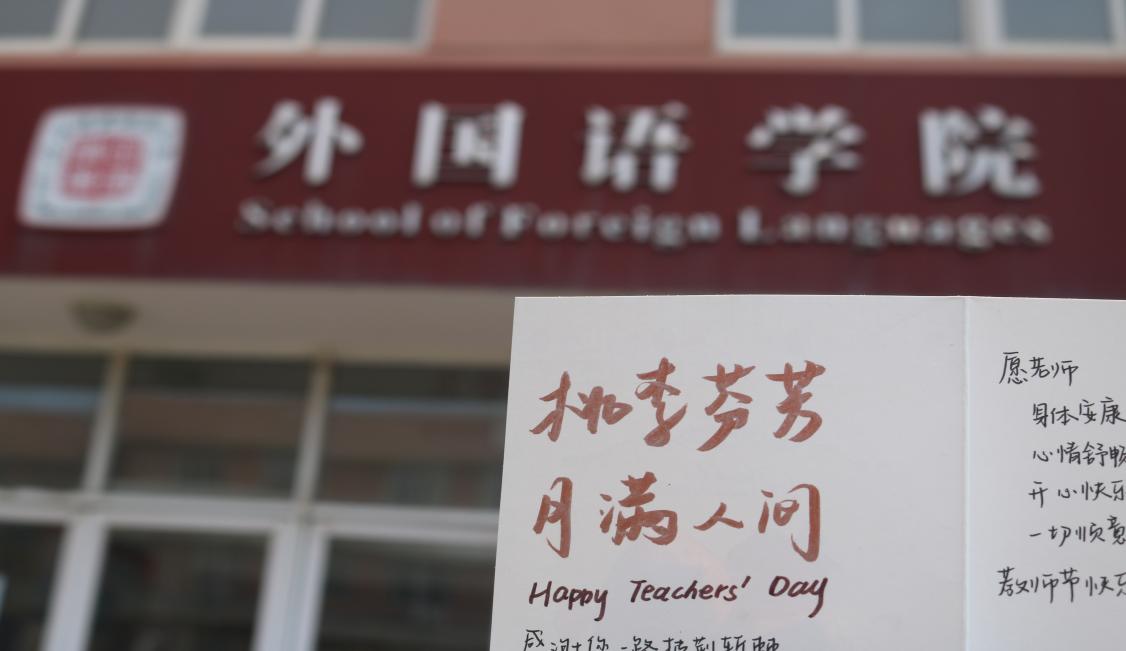 外国语学院
School of Foreign Languages
桃李芬芳
月满人间
Happy Teachers' Day
感谢你一路披荆斩棘
愿老师
身体安康
心情舒畅
开心快乐
一切顺意
教师节快乐